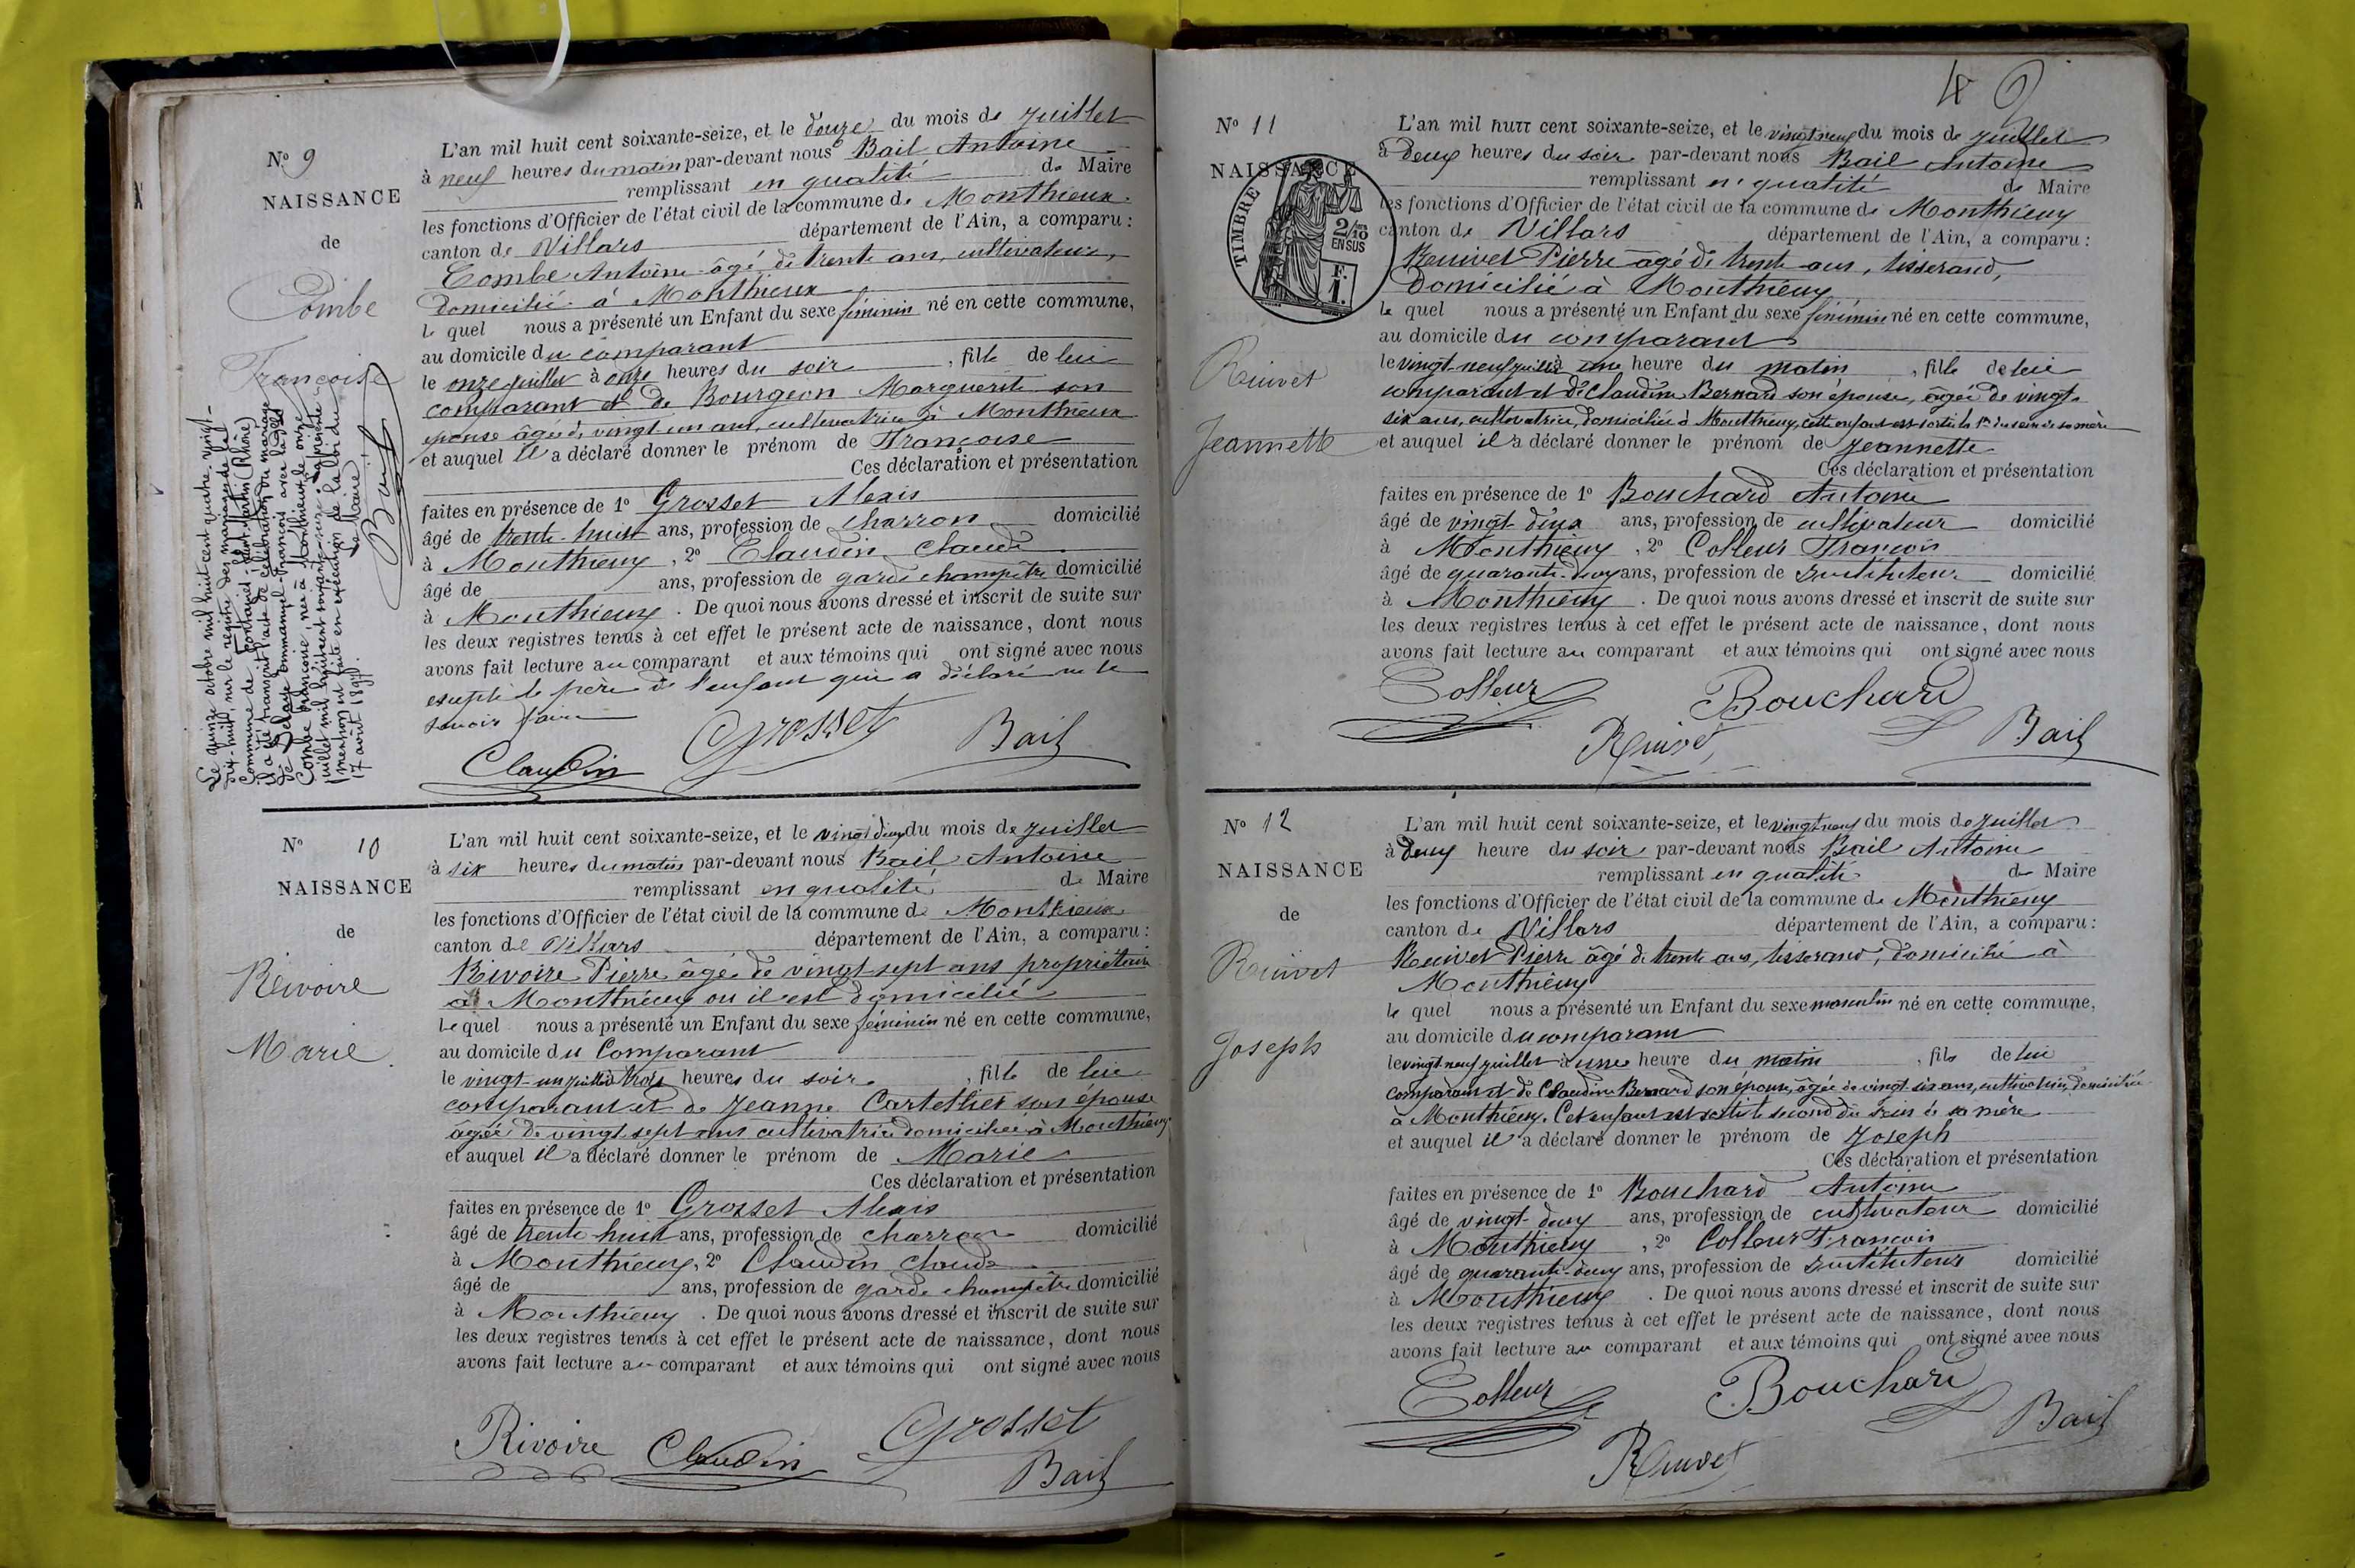 N° 9
NAISSANCE
de
Combe
Françoise
L'an mil huit cent soixante-seize, et le douze du mois de Juillet
à neuf heures du matin par-devant nous Bail Antoine
remplissant en qualité de Maire
les fonctions d'Officier de l'état civil de la commune de Monthieux
canton de Villars département de l'Ain, a comparu :
Combe Antoine âgé de trente ans, cultivateur,
domicilié à Monthieux
le quel nous a présenté un Enfant du sexe féminin né en cette commune,
au domicile du comparant
le onze juillet à onze heures du soir, fille de lui
comparant et de Bourgeon Marguerite son
épouse âgée de vingt un ans, cultivatrice à Monthieux
et auquel il a déclaré donner le prénom de Françoise
Ces déclaration et présentation
faites en présence de 1° Grosset Alexis
âgé de trente-huit ans, profession de charron domicilié
à Monthieux, 2° Claudin Claude
âgé de ans, profession de garde champêtre domicilié
à Monthieux. De quoi nous avons dressé et inscrit de suite sur
les deux registres tenus à cet effet le présent acte de naissance, dont nous
avons fait lecture au comparant et aux témoins qui ont signé avec nous
excepté le père de l'enfant qui a déclaré ne le
savoir faire
Grosset Bail
Claudin
Le quinze octobre mil huit cent quatre-vingt-
dix-huit, sur le registre des mariages de la
commune de Fontaines-Saint-Martin (Rhône)
il a été transcrit l'acte de célébration du mariage
de Delaye Emmanuel-François avec la dite
Combe Françoise, née à Monthieux le onze
juillet mil huit cent soixante-seize. La présente
mention est faite en exécution de la loi du
17 août 1897.
Le Maire
Bail
N° 10
NAISSANCE
de
Rivoire
Marie
L'an mil huit cent soixante-seize, et le vingt deux du mois de Juillet
à six heures du matin par-devant nous Bail Antoine
remplissant en qualité de Maire
les fonctions d'Officier de l'état civil de la commune de Monthieux
canton de Villars département de l'Ain, a comparu :
Rivoire Pierre âgé de vingt sept ans propriétaire
à Monthieux ou il est domicilié
le quel nous a présenté un Enfant du sexe féminin né en cette commune,
au domicile du Comparant
le vingt-un juillet à trois heures du soir, fille de lui
comparant et de Jeanne Cartellier son épouse
âgée de vingt-sept ans cultivatrice domiciliée à Monthieux
et auquel il a déclaré donner le prénom de Marie
Ces déclaration et présentation
faites en présence de 1° Grosset Alexis
âgé de trente-huit ans, profession de charron domicilié
à Monthieux, 2° Claudin Claude
âgé de ans, profession de garde champêtre domicilié
à Monthieux. De quoi nous avons dressé et inscrit de suite sur
les deux registres tenus à cet effet le présent acte de naissance, dont nous
avons fait lecture au comparant et aux témoins qui ont signé avec nous
Rivoire Claudin Grosset
Bail
N° 11
NAISSANCE
TIMBRE
2/10
EN SUS
F.
1.
Reuivet
Jeannette
L'an mil huit cent soixante-seize, et le vingt neuf du mois de Juillet
à deux heures du soir par-devant nous Bail Antoine
remplissant en qualité de Maire
les fonctions d'Officier de l'état civil de la commune de Monthieux
canton de Villars département de l'Ain, a comparu :
Reuivet Pierre âgé de trente ans, tisserand,
domicilié à Monthieux
le quel nous a présenté un Enfant du sexe féminin né en cette commune,
au domicile du comparant
le vingt-neuf juillet à une heure du matin, fille de lui
comparant et de Claudine Bernard son épouse, âgée de vingt-
six ans, cultivatrice, domiciliée à Monthieux, cette enfant est sortie la 1re du sein de sa mère
et auquel il a déclaré donner le prénom de Jeannette
Ces déclaration et présentation
faites en présence de 1° Bouchard Antoine
âgé de vingt-deux ans, profession de cultivateur domicilié
à Monthieux, 2° Colleur François
âgé de quarante-deux ans, profession de Instituteur domicilié
à Monthieux. De quoi nous avons dressé et inscrit de suite sur
les deux registres tenus à cet effet le présent acte de naissance, dont nous
avons fait lecture au comparant et aux témoins qui ont signé avec nous
Colleur Bouchard
Reuivet Bail
N° 12
NAISSANCE
de
Reuivet
Joseph
L'an mil huit cent soixante-seize, et le vingt neuf du mois de Juillet
à deux heure du soir par-devant nous Bail Antoine
remplissant en qualité de Maire
les fonctions d'Officier de l'état civil de la commune de Monthieux
canton de Villars département de l'Ain, a comparu :
Reuivet Pierre âgé de trente ans, tisserand, domicilié à
Monthieux
le quel nous a présenté un Enfant du sexe masculin né en cette commune,
au domicile du comparant
le vingt neuf juillet à une heure du matin, fils de lui
comparant et de Claudine Bernard son épouse, âgée de vingt-six ans, cultivatrice, domiciliée
à Monthieux. Cet enfant est sorti le second du sein de sa mère
et auquel il a déclaré donner le prénom de Joseph
Ces déclaration et présentation
faites en présence de 1° Bouchard Antoine
âgé de vingt-deux ans, profession de cultivateur domicilié
à Monthieux, 2° Colleur François
âgé de quarante-deux ans, profession de Instituteur domicilié
à Monthieux. De quoi nous avons dressé et inscrit de suite sur
les deux registres tenus à cet effet le présent acte de naissance, dont nous
avons fait lecture au comparant et aux témoins qui ont signé avec nous
Colleur Bouchard
Reuivet Bail